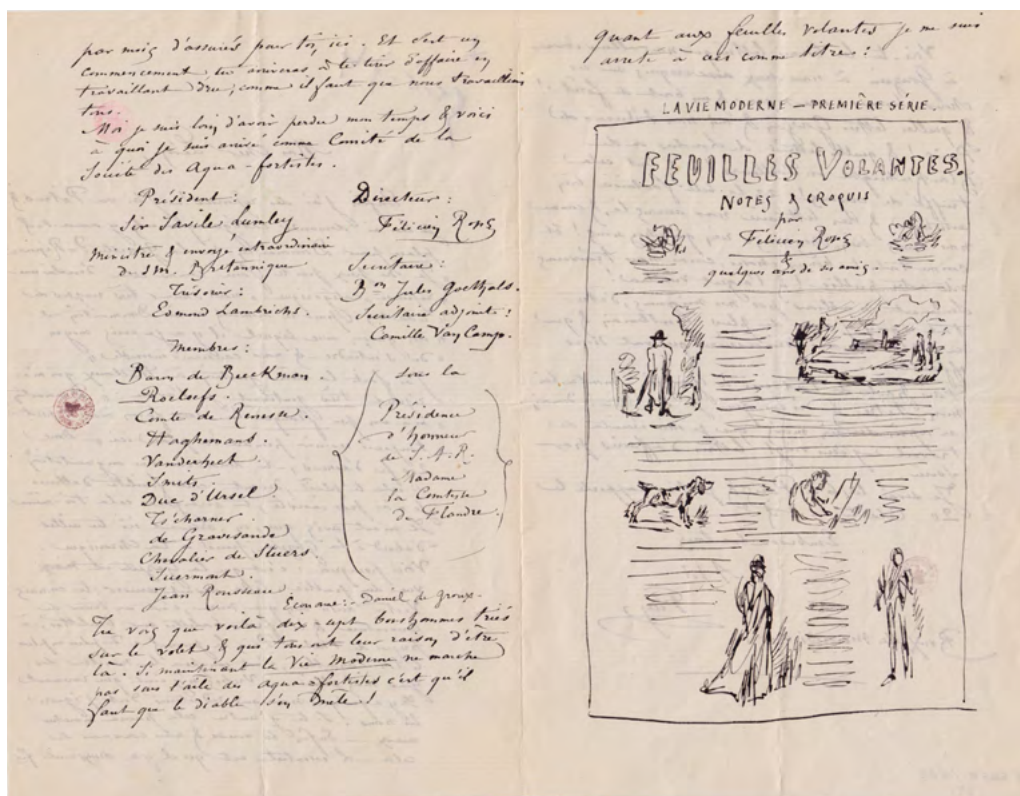 par mois d'assurés pour toi, ici. Et c'est un
commencement tu arriveras à te tirer d'affaire en
travaillant dru, comme il faut que nous travaillions
tous.
Moi je suis loin d'avoir perdu mon temps & voici
à quoi je suis arrivé comme Comité de la
Société des Aqua-fortistes.
Président :
Sir Savile Lumley
Ministre & envoyé extraordinaire
de S.M. Britannique
Trésorier :
Edmond Lambrichs.
Directeur :
Félicien Rops
Secrétaire :
Bon Jules Goethals.
Secrétaire adjoint :
Camille Van Camp.
Membres :
Baron de Beeckman.
Roelofs.
Comte de Renesse.
Haghemans.
Vanderhect
Smits.
Duc d'Ursel.
Tscharner.
de Gravesande
Chevalier de Stuers.
Suermont.
Jean Rousseau.
sous la
Présidence
d'honneur
de S.A.R.
Madame
la Comtesse
de Flandre.
Econome : Daniel de Groux.
Tu vois que voilà dix-sept bonshommes triés
sur le volet & qui tous ont leur raison d'être
là. Si maintenant la Vie Moderne ne marche
pas sous l'aile des Aqua-fortistes c'est qu'il
faut que le diable s'en mêle !
quant aux feuilles volantes je me suis
arrêté à ceci comme titres :
LA VIE MODERNE — PREMIÈRE SÉRIE.
FEUILLES VOLANTES.
NOTES & CROQUIS
par
Félicien Rops
&
quelques uns de ses amis.